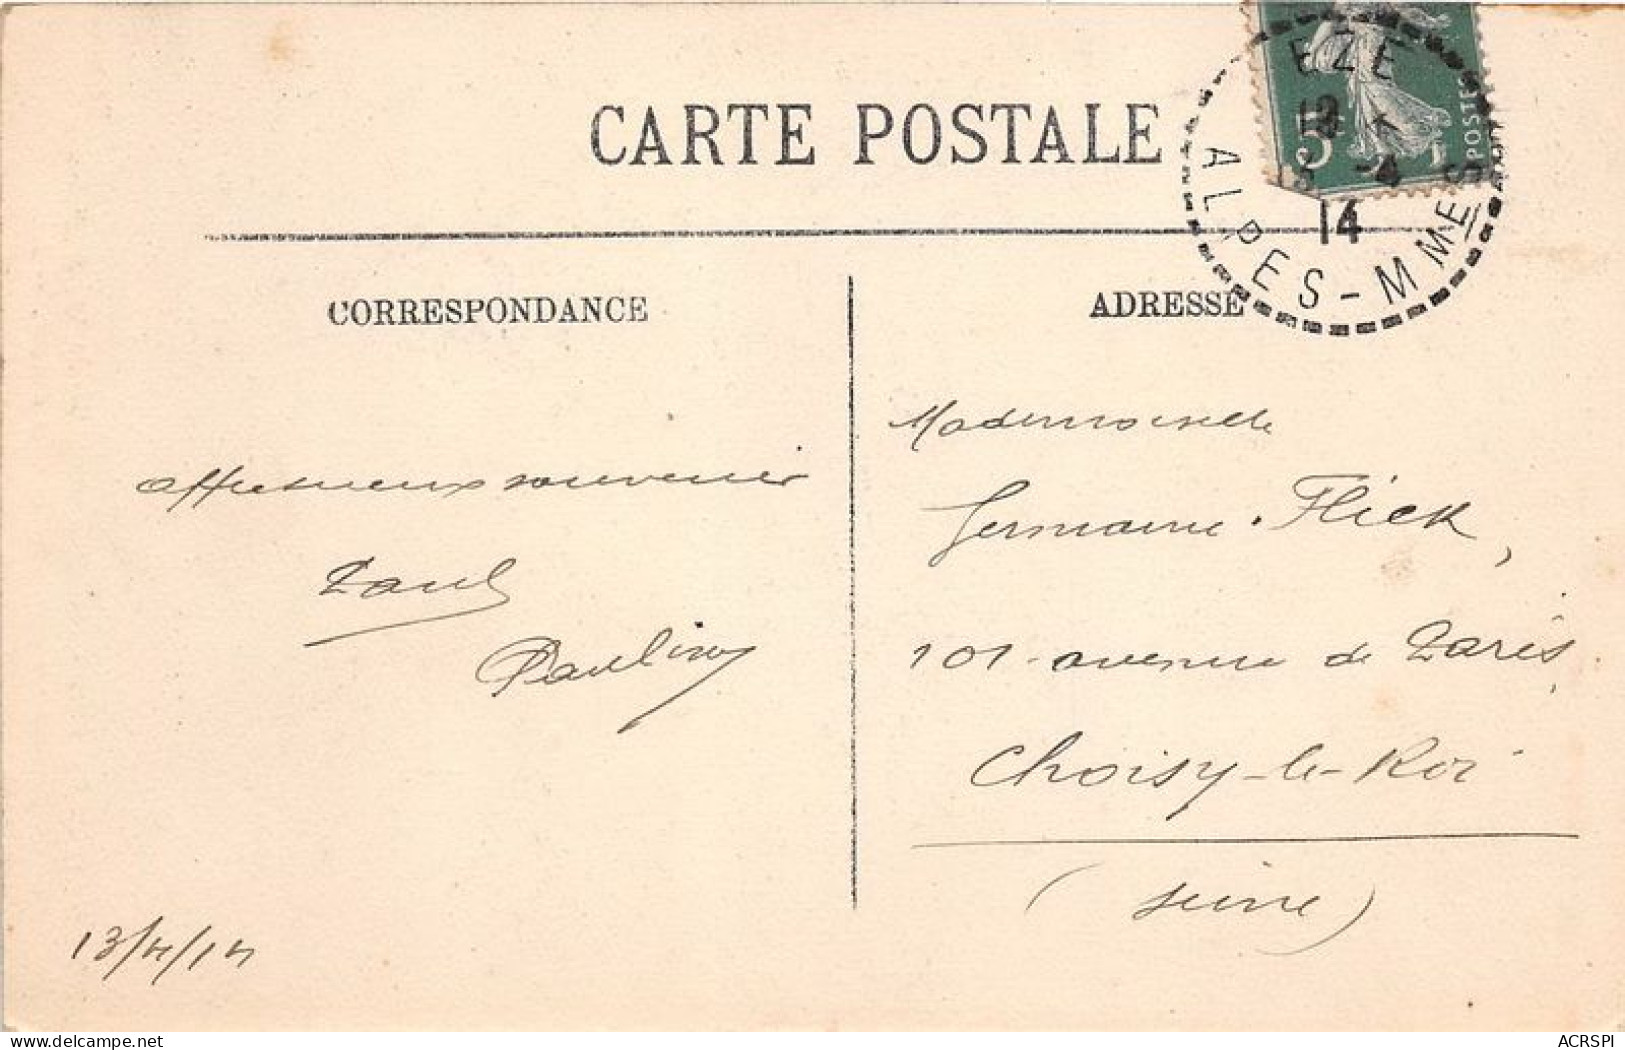 CARTE POSTALE
EZE
13 -4
14
ALPES-MMES
5
POSTES
CORRESPONDANCE
affectueux souvenir
Paul
13/4/14
ADRESSE
Mademoiselle
Germaine Flick,
101 avenue de Paris,
Choisy-le-Roi
(Seine)
delcampe.net
ACRSPI